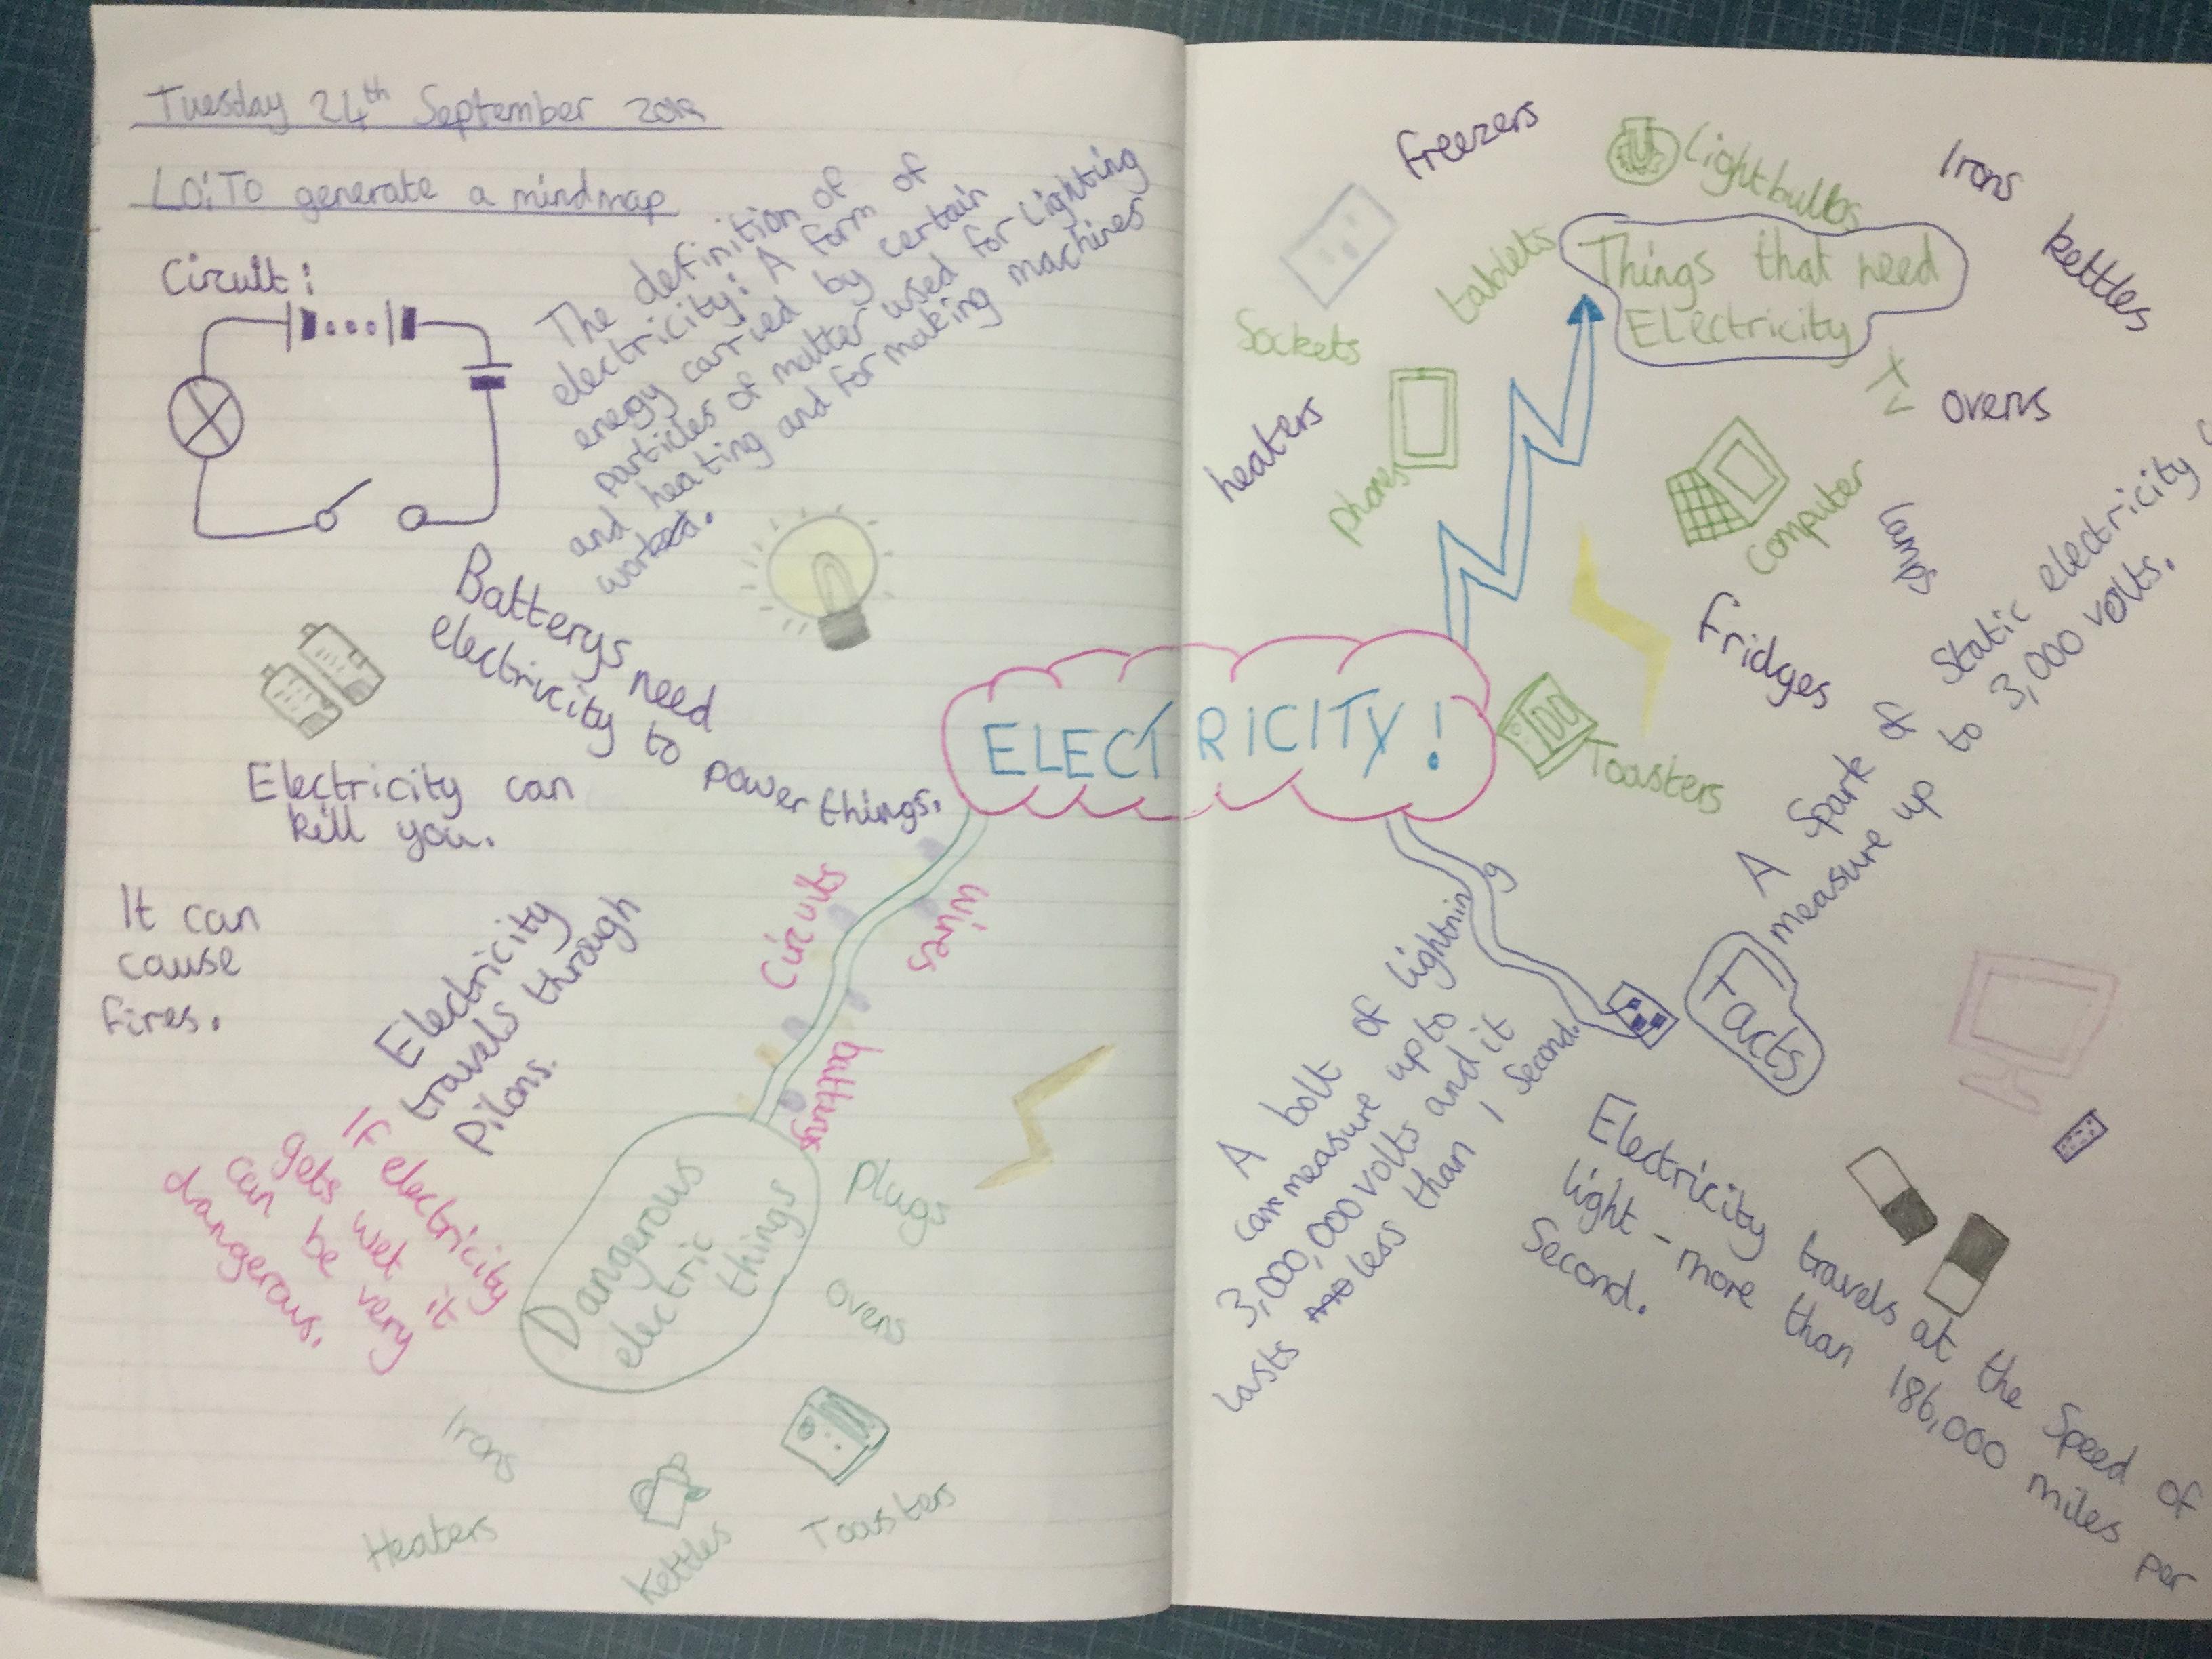 Tuesday 24th September 2019
LO:TO generate a mindmap
Circuit:
The definition of
electricity: A form of
energy carried by certain
particles of matter used for lighting
and heating and for making machines
worked.
Batterys need
electricity to power things.
Electricity can
kill you.
It can
cause
fires.
Electricity
travels through
Pilons.
If electricity
gets wet it
can be very
dangerous.
ELECTRICITY!
Circuits
wires
batterys
Dangerous
electric
things
Plugs
Ovens
Toasters
Kettles
Irons
Heaters
Things that need
Electricity
freezers
Lightbulbs
Irons
kettles
tablets
Sockets
heaters
phones
TV
Ovens
Computer
Lamps
Fridges
Toasters
Facts
A Spark of Static electricity
measure up to 3,000 volts.
A bolt of lightning
can measure up to
3,000,000 volts and it
lasts less than 1 Second.
Electricity travels at the Speed of
light - more than 186,000 miles per
Second.